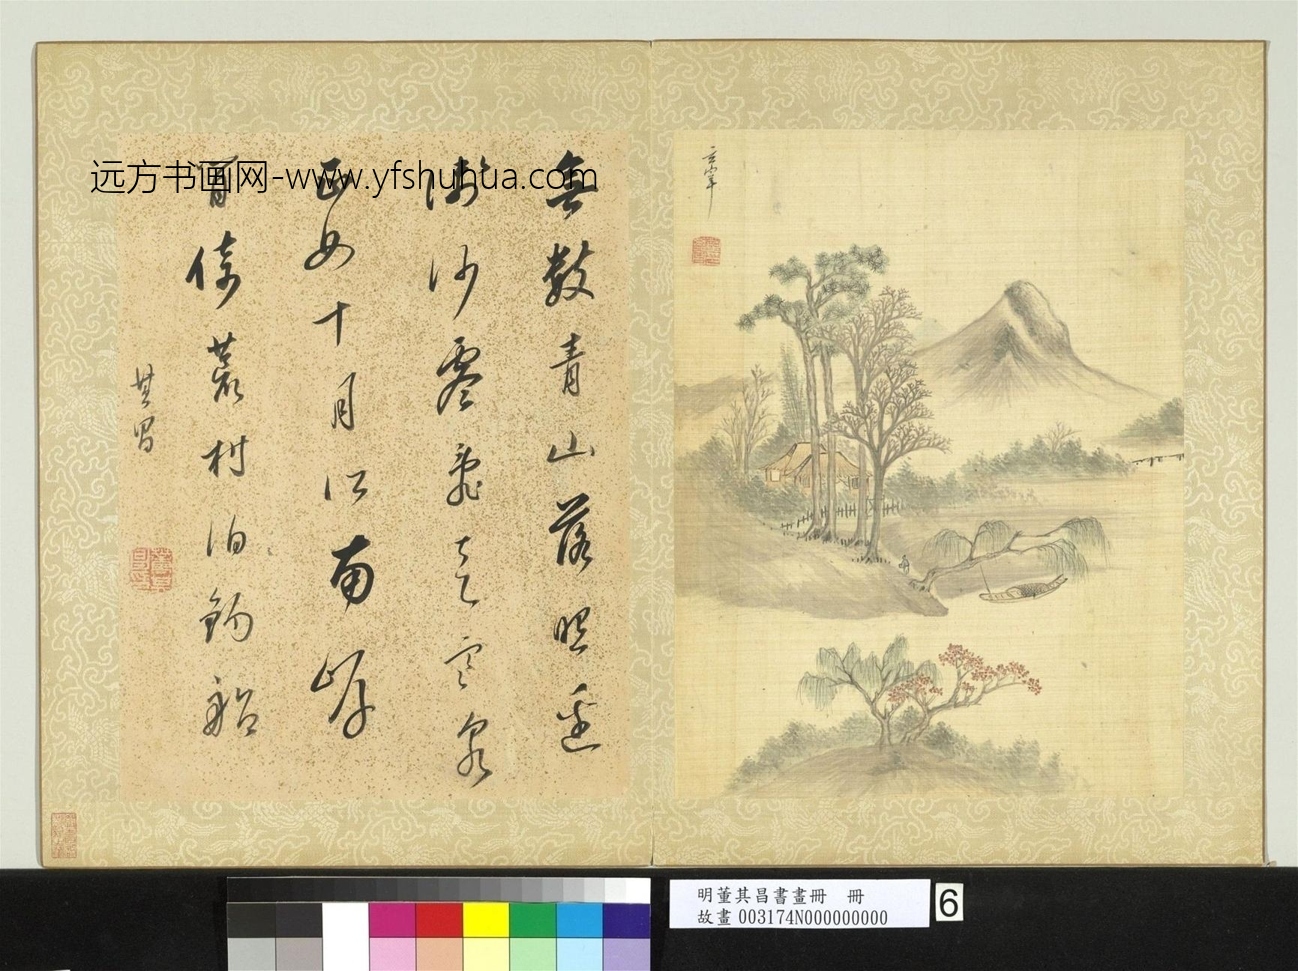 玄宰
無數青山落照邊
沙零亂寒泉
正如十月江南岸
曾荒村泊釣船
其昌
远方书画网-www.yfshuhua.com
明董其昌書畫冊　冊
故畫 003174N000000000
6